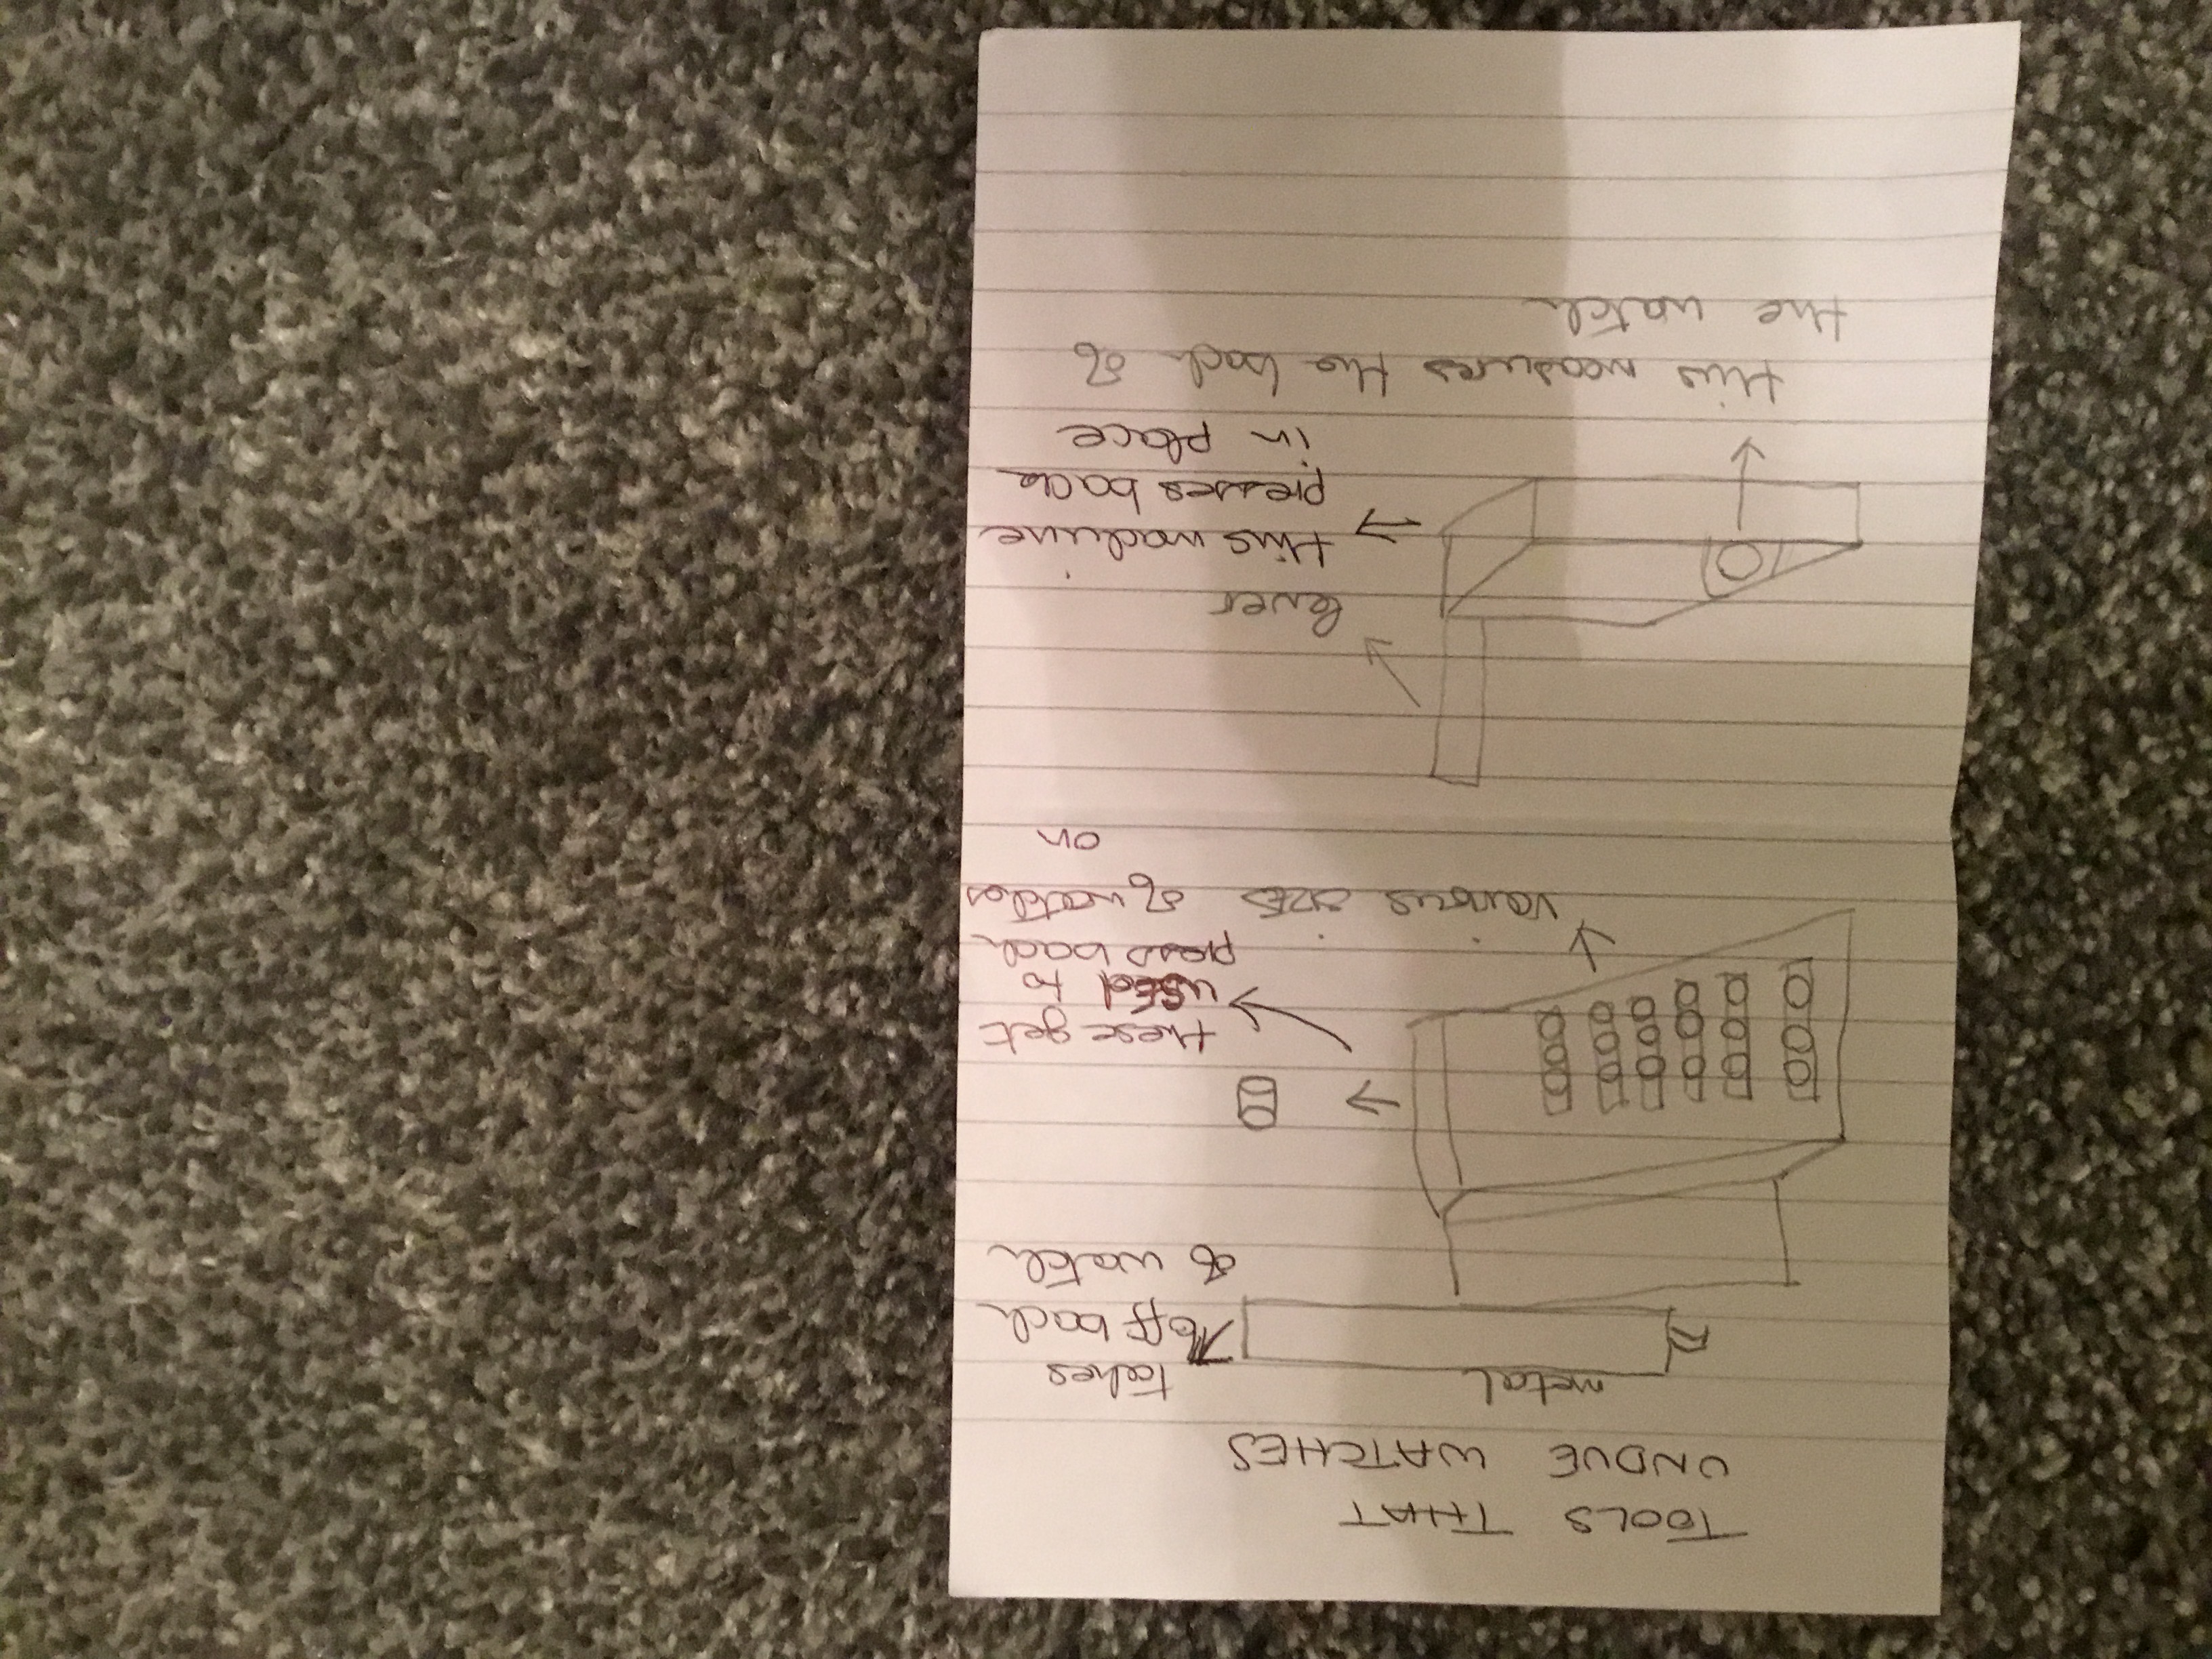 TOOLS THAT
UNDUE WATCHES
metal
takes
off back
of watch
these get
used to
press back
various sizes of watches
on
lever
this machine
presses back
in place
this measures the back of
the watch